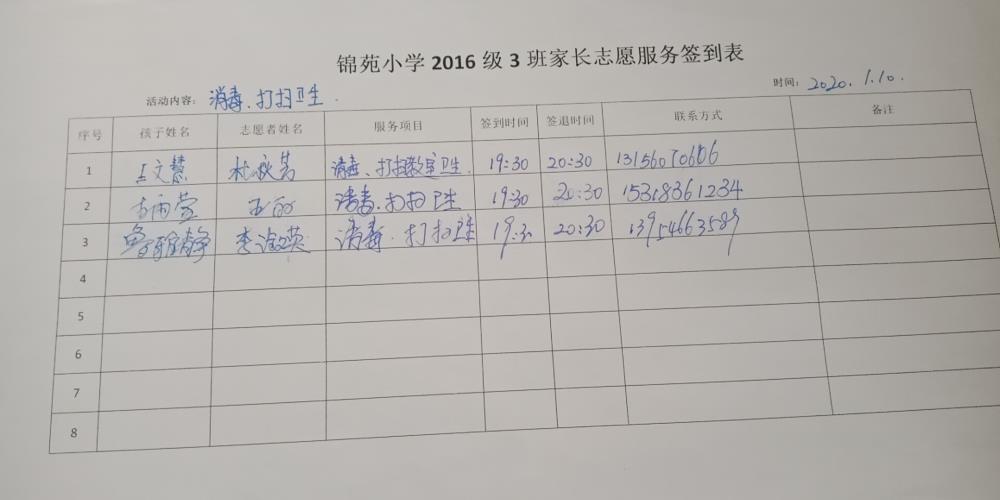 锦苑小学 2016 级 3 班家长志愿服务签到表
活动内容： 消毒、打扫卫生. 时间： 2020.1.10.
序号 孩子姓名 志愿者姓名 服务项目 签到时间 签退时间 联系方式 备注
1 王文慧 杜秋芳 消毒、打扫教室卫生. 19:30 20:30 13156070606
2 消毒.打扫卫生 19:30 20:30 15318361234
3 鲁雅静 李海英 消毒.打扫卫生 19:30 20:30 13954663589
4
5
6
7
8